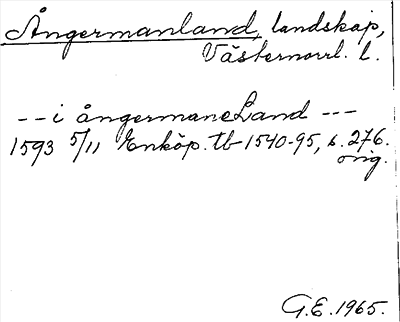 Ångermanland, landskap,
Västernorrl. l.
-- i ångermaneLand ---
1593 5/11 Enköp. tb 1540-95, s. 276.
orig.
G.E. 1965.